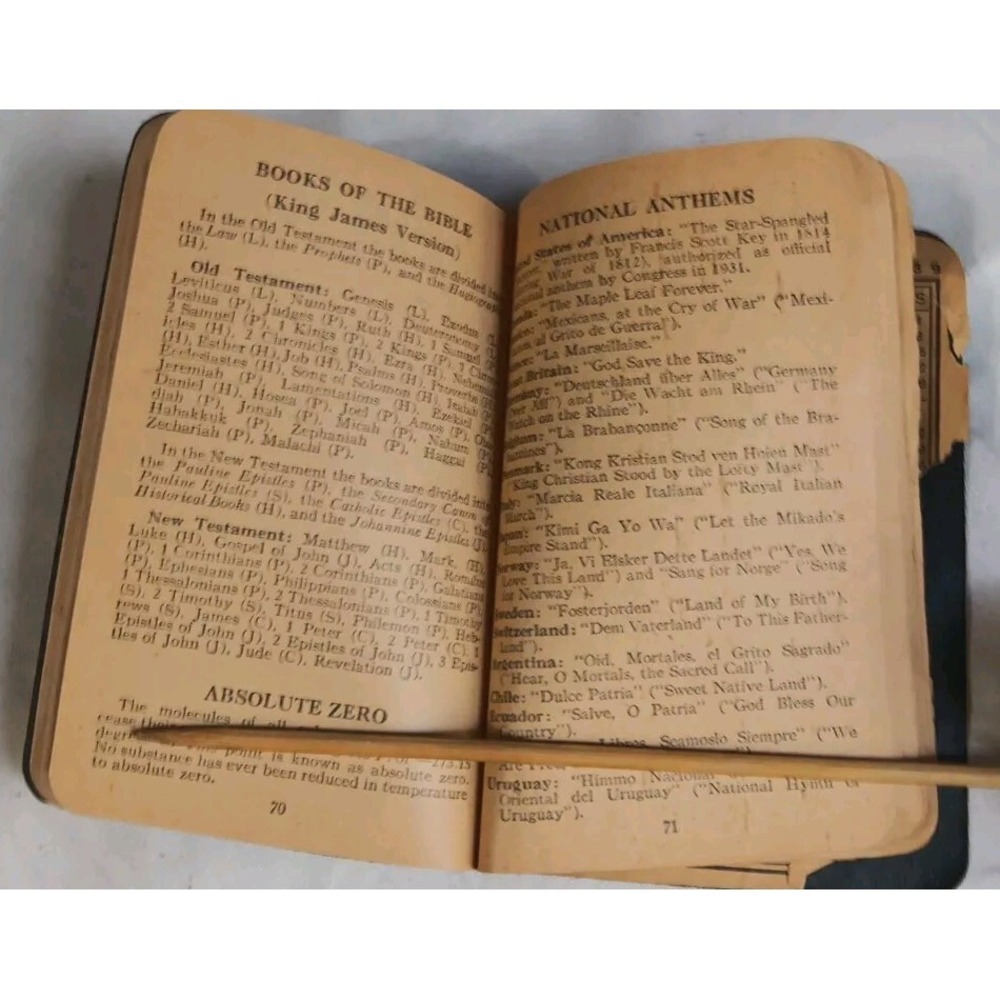 BOOKS OF THE BIBLE
(King James Version)
In the Old Testament the books are divided into
the Law (L), the Prophets (P), and the Hagiographa
(H).
Old Testament: Genesis (L), Exodus
Leviticus (L), Numbers (L), Deuteronomy (L),
Joshua (P), Judges (P), Ruth (H), 1 Samuel
2 Samuel (P), 1 Kings (P), 2 Kings (P), 1 Chron-
icles (H), 2 Chronicles (H), Ezra (H), Nehemiah
(H), Esther (H), Job (H), Psalms (H), Proverbs (H),
Ecclesiastes (H), Song of Solomon (H), Isaiah (P),
Jeremiah (P), Lamentations (H), Ezekiel (P),
Daniel (H), Hosea (P), Joel (P), Amos (P), Oba-
diah (P), Jonah (P), Micah (P), Nahum (P),
Habakkuk (P), Zephaniah (P), Haggai (P),
Zechariah (P), Malachi (P).
In the New Testament the books are divided into
the Pauline Epistles (P), the Secondary Canon of
Pauline Epistles (S), the Catholic Epistles (C), the
Historical Books (H), and the Johannine Epistles (J).
New Testament: Matthew (H), Mark, (H),
Luke (H), Gospel of John (J), Acts (H), Romans
(P), 1 Corinthians (P), 2 Corinthians (P), Galatians
(P), Ephesians (P), Philippians (P), Colossians (P),
1 Thessalonians (P), 2 Thessalonians (P), 1 Timothy
(S), 2 Timothy (S), Titus (S), Philemon (P), Heb-
rews (S), James (C), 1 Peter (C), 2 Peter (C), 1
Epistles of John (J), 2 Epistles of John (J), 3 Epis-
tles of John (J), Jude (C), Revelation (J).
ABSOLUTE ZERO
The molecules of all
cease their of -273.13
degr This point is known as absolute zero.
No substance has ever been reduced in temperature
to absolute zero.
70
NATIONAL ANTHEMS
States of America: "The Star-Spangled
written by Francis Scott Key in 1814
War of 1812), authorized as official
anthem by Congress in 1931.
"The Maple Leaf Forever."
"Mexicans, at the Cry of War" ("Mexi-
canos, al Grito de Guerra").
"La Marseillaise."
Britain: "God Save the King."
"Deutschland über Alles" ("Germany
Over All") and "Die Wacht am Rhein" ("The
Watch on the Rhine").
"La Brabançonne" ("Song of the Bra-
"Kong Kristian Stod ven Hoien Mast"
"King Christian Stood by the Lofty Mast").
"Marcia Reale Italiana" ("Royal Italian
March").
"Kimi Ga Yo Wa" ("Let the Mikado's
Empire Stand").
Norway: "Ja, Vi Elsker Dette Landet" ("Yes, We
Love This Land") and "Sang for Norge" ("Song
for Norway").
Sweden: "Fosterjorden" ("Land of My Birth").
Switzerland: "Dem Vaterland" ("To This Father-
land").
Argentina: "Oid, Mortales, el Grito Sagrado"
("Hear, O Mortals, the Sacred Call").
Chile: "Dulce Patria" ("Sweet Native Land").
Ecuador: "Salve, O Patria" ("God Bless Our
Country").
Libres, Seamoslo Siempre" ("We
Are Free,
Uruguay: "Himmo Nacional
Oriental del Uruguay" ("National Hymn of
Uruguay").
71